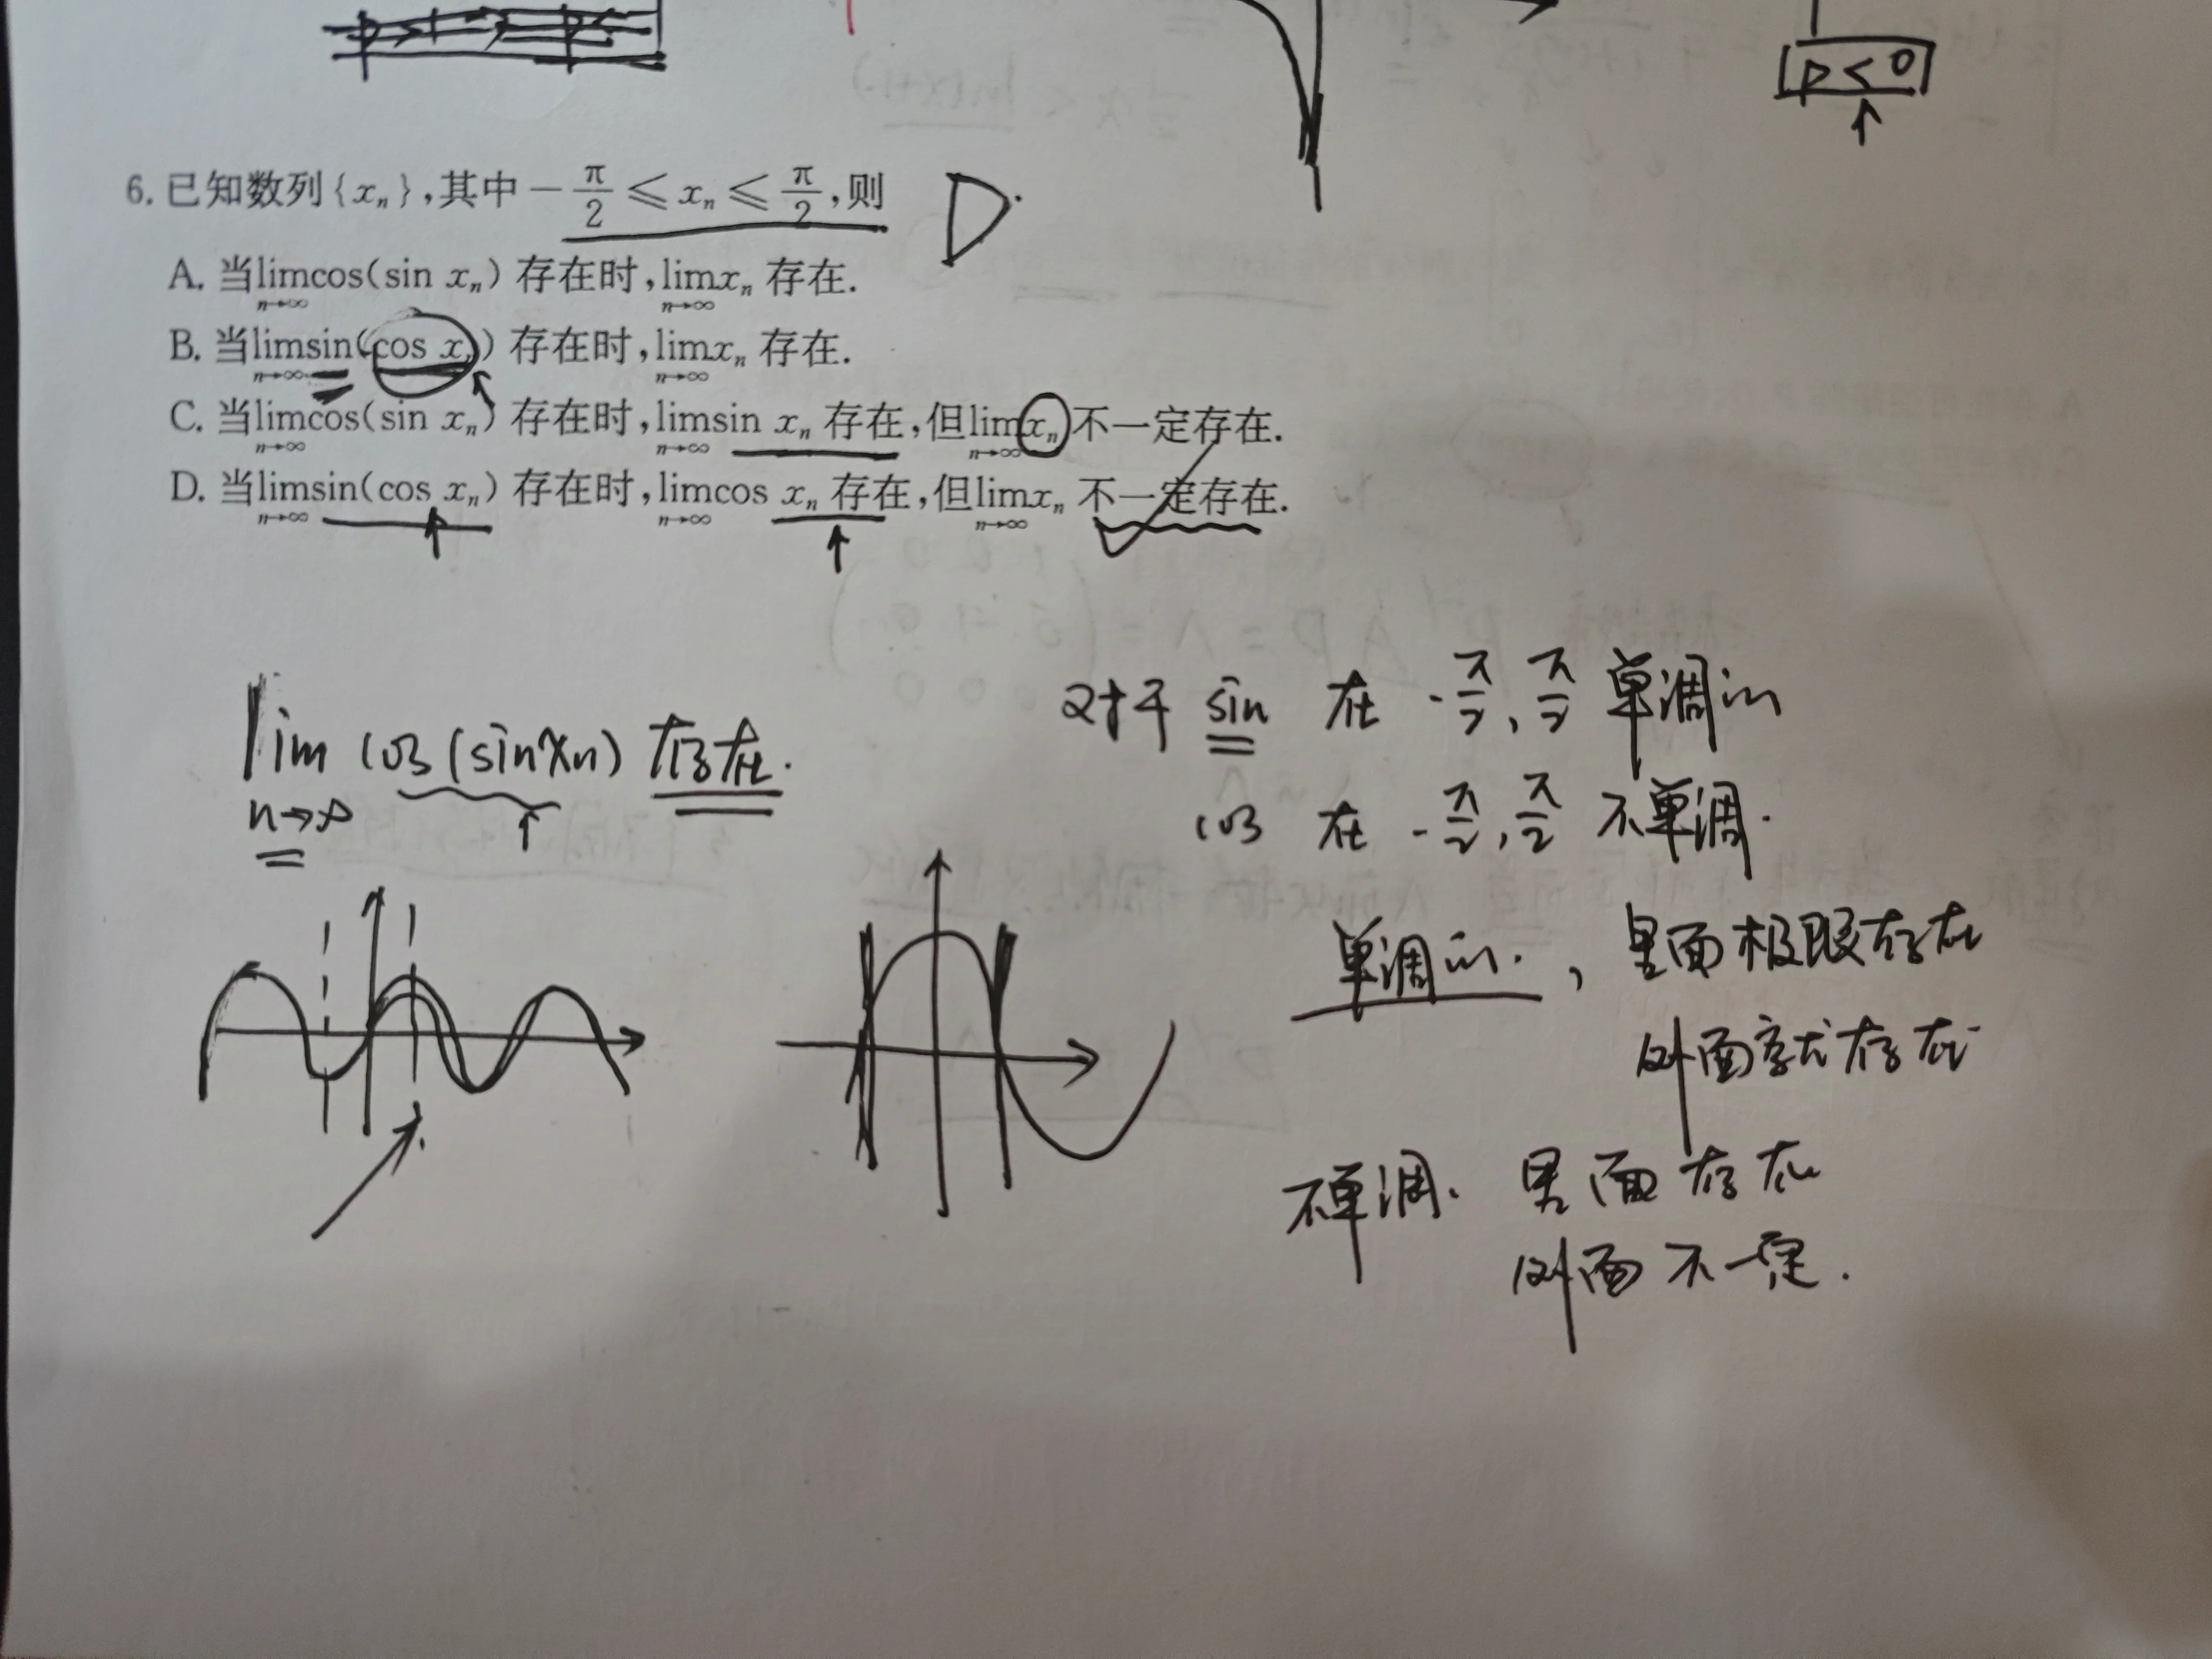 p < 0
6. 已知数列{xₙ},其中−π/2 ⩽ xₙ ⩽ π/2,则 D.
A. 当lim n→∞ cos(sin xₙ) 存在时,lim n→∞ xₙ 存在.
B. 当lim n→∞ sin(cos xₙ) 存在时,lim n→∞ xₙ 存在.
C. 当lim n→∞ cos(sin xₙ) 存在时,lim n→∞ sin xₙ 存在,但lim n→∞ xₙ 不一定存在.
D. 当lim n→∞ sin(cos xₙ) 存在时,lim n→∞ cos xₙ 存在,但lim n→∞ xₙ 不一定存在.
lim n→∞ cos(sin xn) 存在.
对于 sin 在 -π/2, π/2 单调
cos 在 -π/2, π/2 不单调.
单调 , 里面极限存在
外面就存在
不单调. 里面存在
外面不一定.